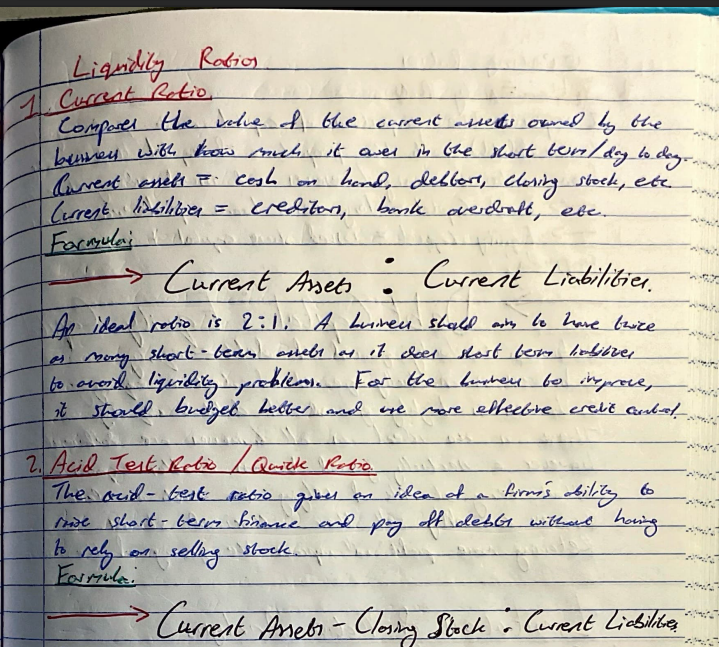 Liquidity Ratios
1. Current Ratio
Compares the value of the current assets owned by the
business with how much it owes in the short term/day to day.
Current assets = cash on hand, debtors, closing stock, etc.
Current liabilities = creditors, bank overdraft, etc.
Formula:
Current Assets : Current Liabilities.
An ideal ratio is 2:1. A business should aim to have twice
as many short-term assets as it does short term liabilities
to avoid liquidity problems. For the business to improve,
it should budget better and use more effective credit control.
2. Acid Test Ratio / Quick Ratio
The acid-test ratio gives an idea of a firm's ability to
raise short-term finance and pay off debts without having
to rely on selling stock.
Formula:
Current Assets - Closing Stock : Current Liabilities